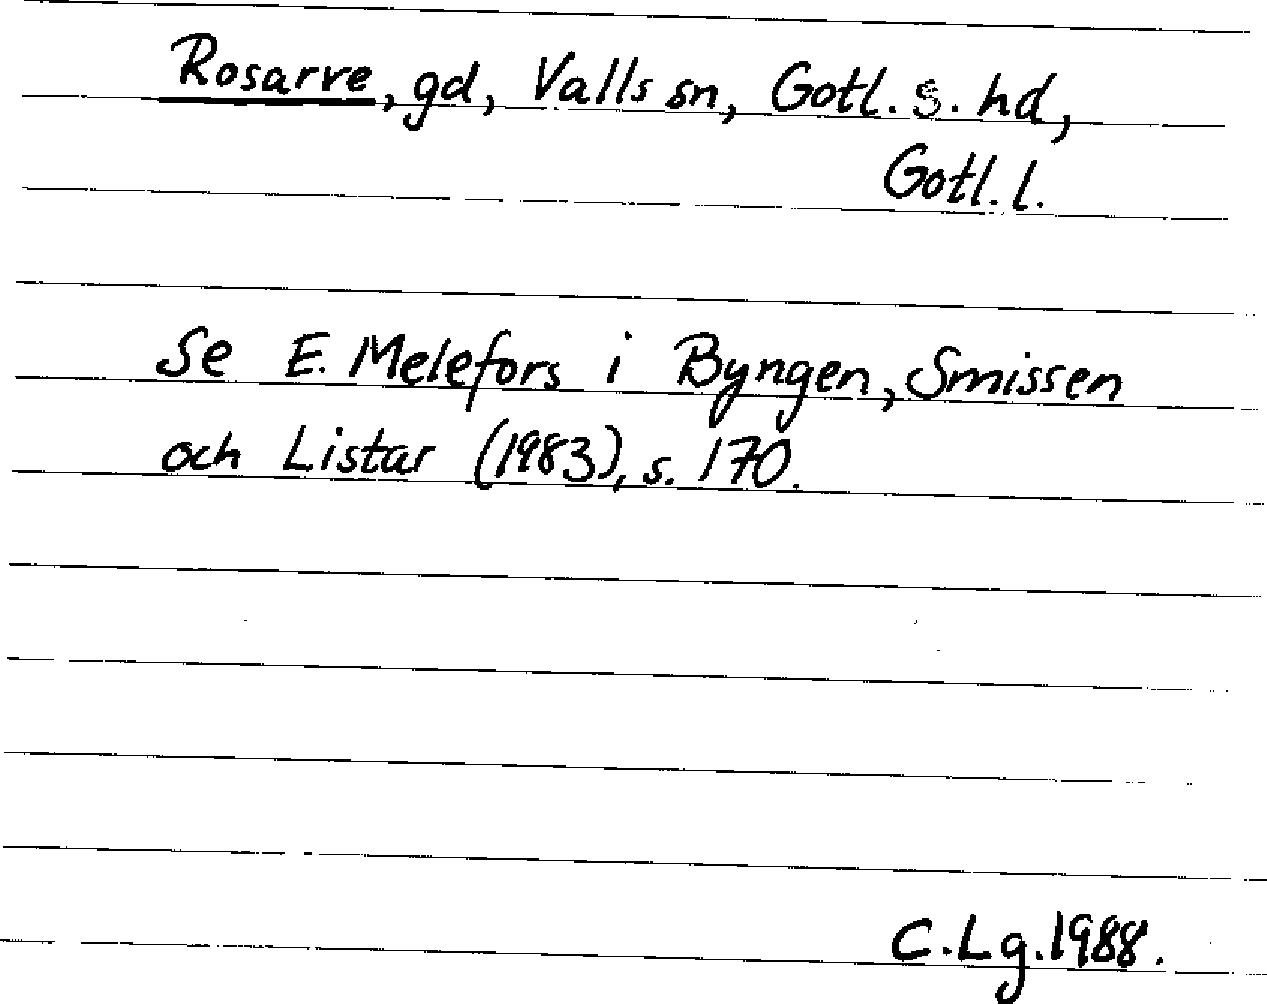 Rosarve, gd, Valls sn, Gotl. s. hd,
Gotl. l.
Se E. Melefors i Byngen, Smissen
och Listar (1983), s. 170.
C. Lg. 1988.